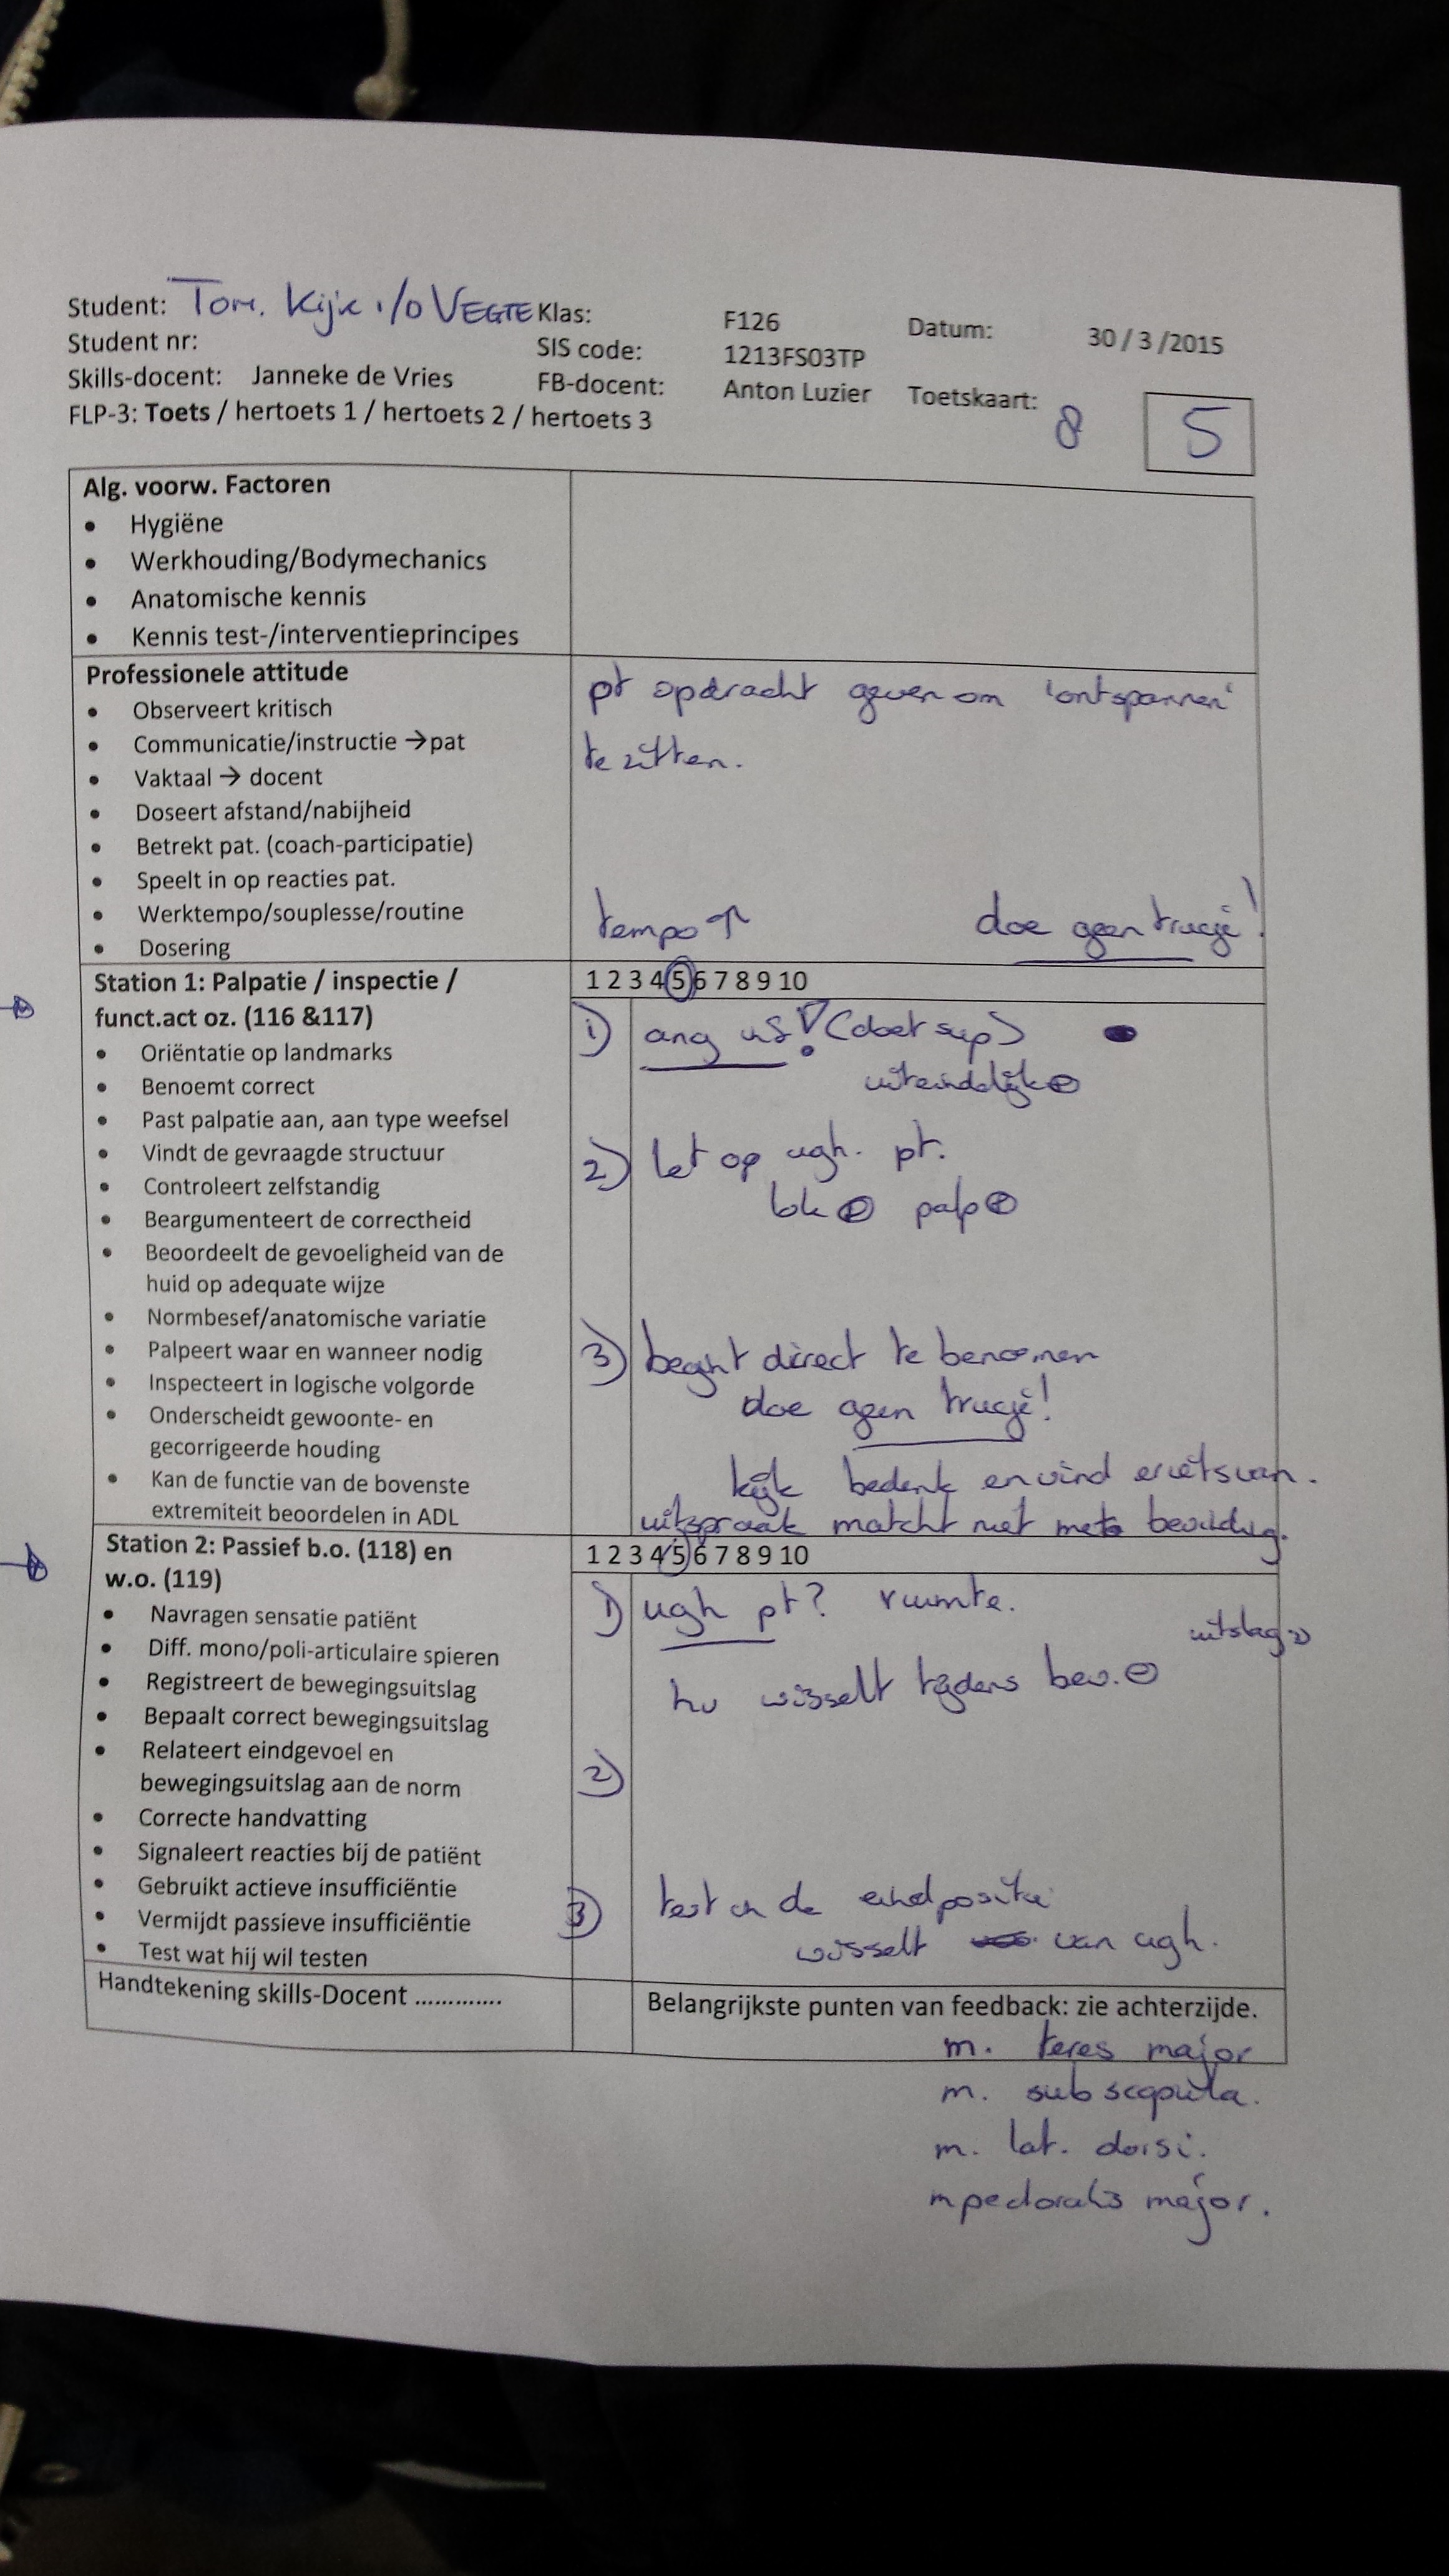 Student: Tom. Kijk i/o VEGTE Klas: F126 Datum: 30 / 3 /2015
Student nr: SIS code: 1213FS03TP
Skills-docent: Janneke de Vries FB-docent: Anton Luzier Toetskaart: 8 5
FLP-3: Toets / hertoets 1 / hertoets 2 / hertoets 3
Alg. voorw. Factoren
• Hygiëne
• Werkhouding/Bodymechanics
• Anatomische kennis
• Kennis test-/interventieprincipes
Professionele attitude
• Observeert kritisch
• Communicatie/instructie →pat
• Vaktaal → docent
• Doseert afstand/nabijheid
• Betrekt pat. (coach-participatie)
• Speelt in op reacties pat.
• Werktempo/souplesse/routine
• Dosering
pt opdracht geven om 'ontspannen'
te zitten.
tempo ↑ doe geen trucje!
Station 1: Palpatie / inspectie /
funct.act oz. (116 &117)
• Oriëntatie op landmarks
• Benoemt correct
• Past palpatie aan, aan type weefsel
• Vindt de gevraagde structuur
• Controleert zelfstandig
• Beargumenteert de correctheid
• Beoordeelt de gevoeligheid van de
huid op adequate wijze
• Normbesef/anatomische variatie
• Palpeert waar en wanneer nodig
• Inspecteert in logische volgorde
• Onderscheidt gewoonte- en
gecorrigeerde houding
• Kan de functie van de bovenste
extremiteit beoordelen in ADL
1 2 3 4 5 6 7 8 9 10
1) ang inf! (doet sup)
uiteindelijk
2) let op ugh. pt.
lok ⊕ palp ⊕
3) begint direct te benoemen
doe geen trucje!
kijk bedenk en vind er iets van.
uitspraak matcht niet met
Station 2: Passief b.o. (118) en
w.o. (119)
• Navragen sensatie patiënt
• Diff. mono/poli-articulaire spieren
• Registreert de bewegingsuitslag
• Bepaalt correct bewegingsuitslag
• Relateert eindgevoel en
bewegingsuitslag aan de norm
• Correcte handvatting
• Signaleert reacties bij de patiënt
• Gebruikt actieve insufficiëntie
• Vermijdt passieve insufficiëntie
• Test wat hij wil testen
1 2 3 4 5 6 7 8 9 10
1) ugh pt? ruimte.
uitslag
hv wisselt tijdens bew. ⊖
2)
3) test in de eindpositie
wisselt van ugh.
Handtekening skills-Docent ............. Belangrijkste punten van feedback: zie achterzijde.
m. teres major
m. subscapula.
m. lat. dorsi.
m pectoralis major.